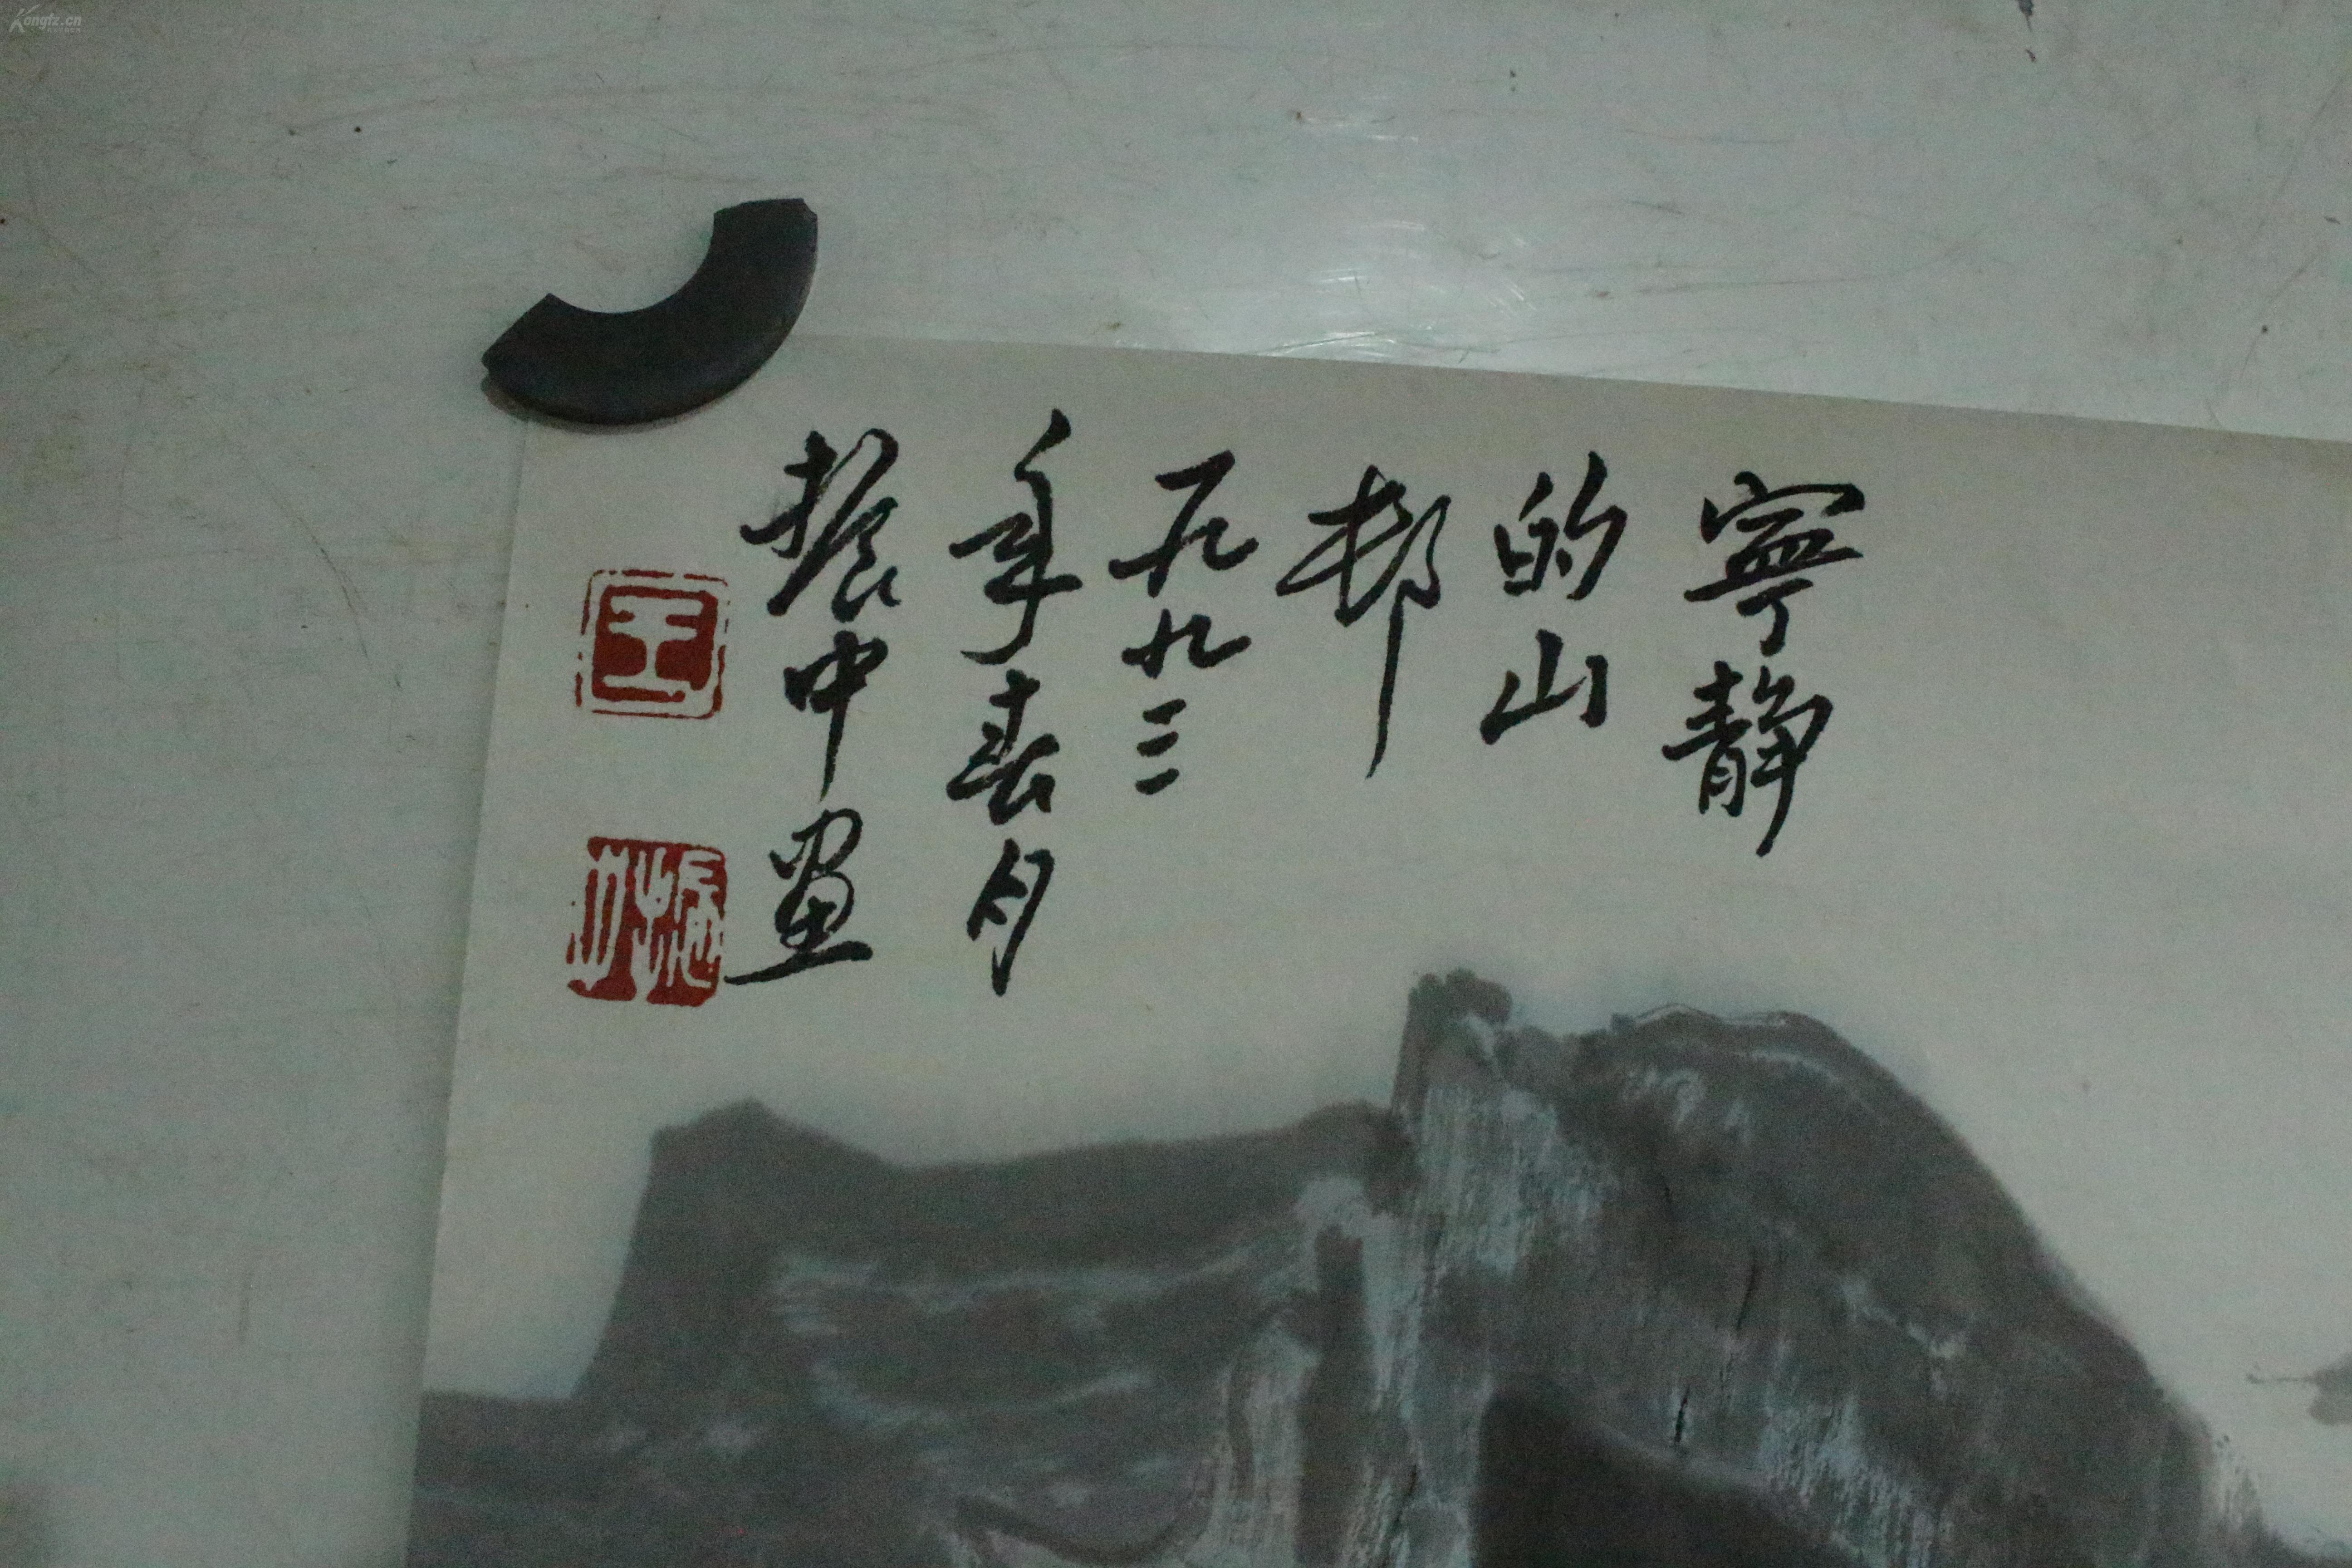 寧静
的山
邨
一九九三
年春月
振中畫
王
Kongfz.cn